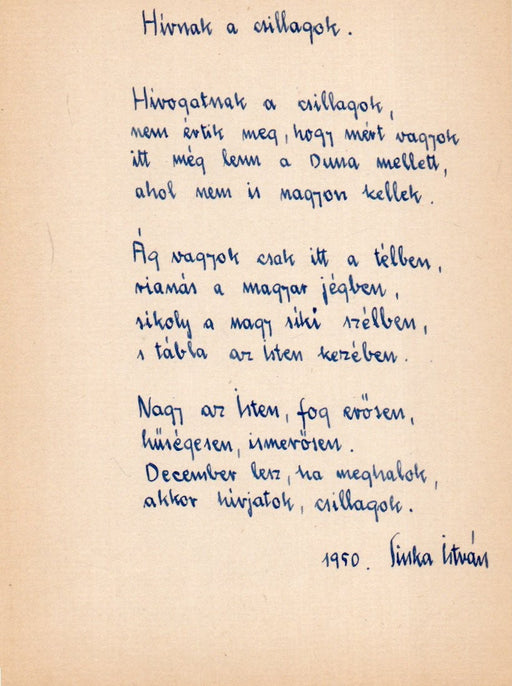 Hívnak a csillagok.
Hívogatnak a csillagok,
nem értik meg, hogy mért vagyok
itt még lenn a Duna mellett,
ahol nem is nagyon kellek.
Ág vagyok csak itt a télben,
rianás a magyar jégben,
sikoly a nagy síki szélben,
s tábla az Isten kezében.
Nagy az Isten, fog erősen,
hűségesen, ismerősen.
December lesz, ha meghalok,
akkor hívjatok, csillagok.
1950. Sinka István